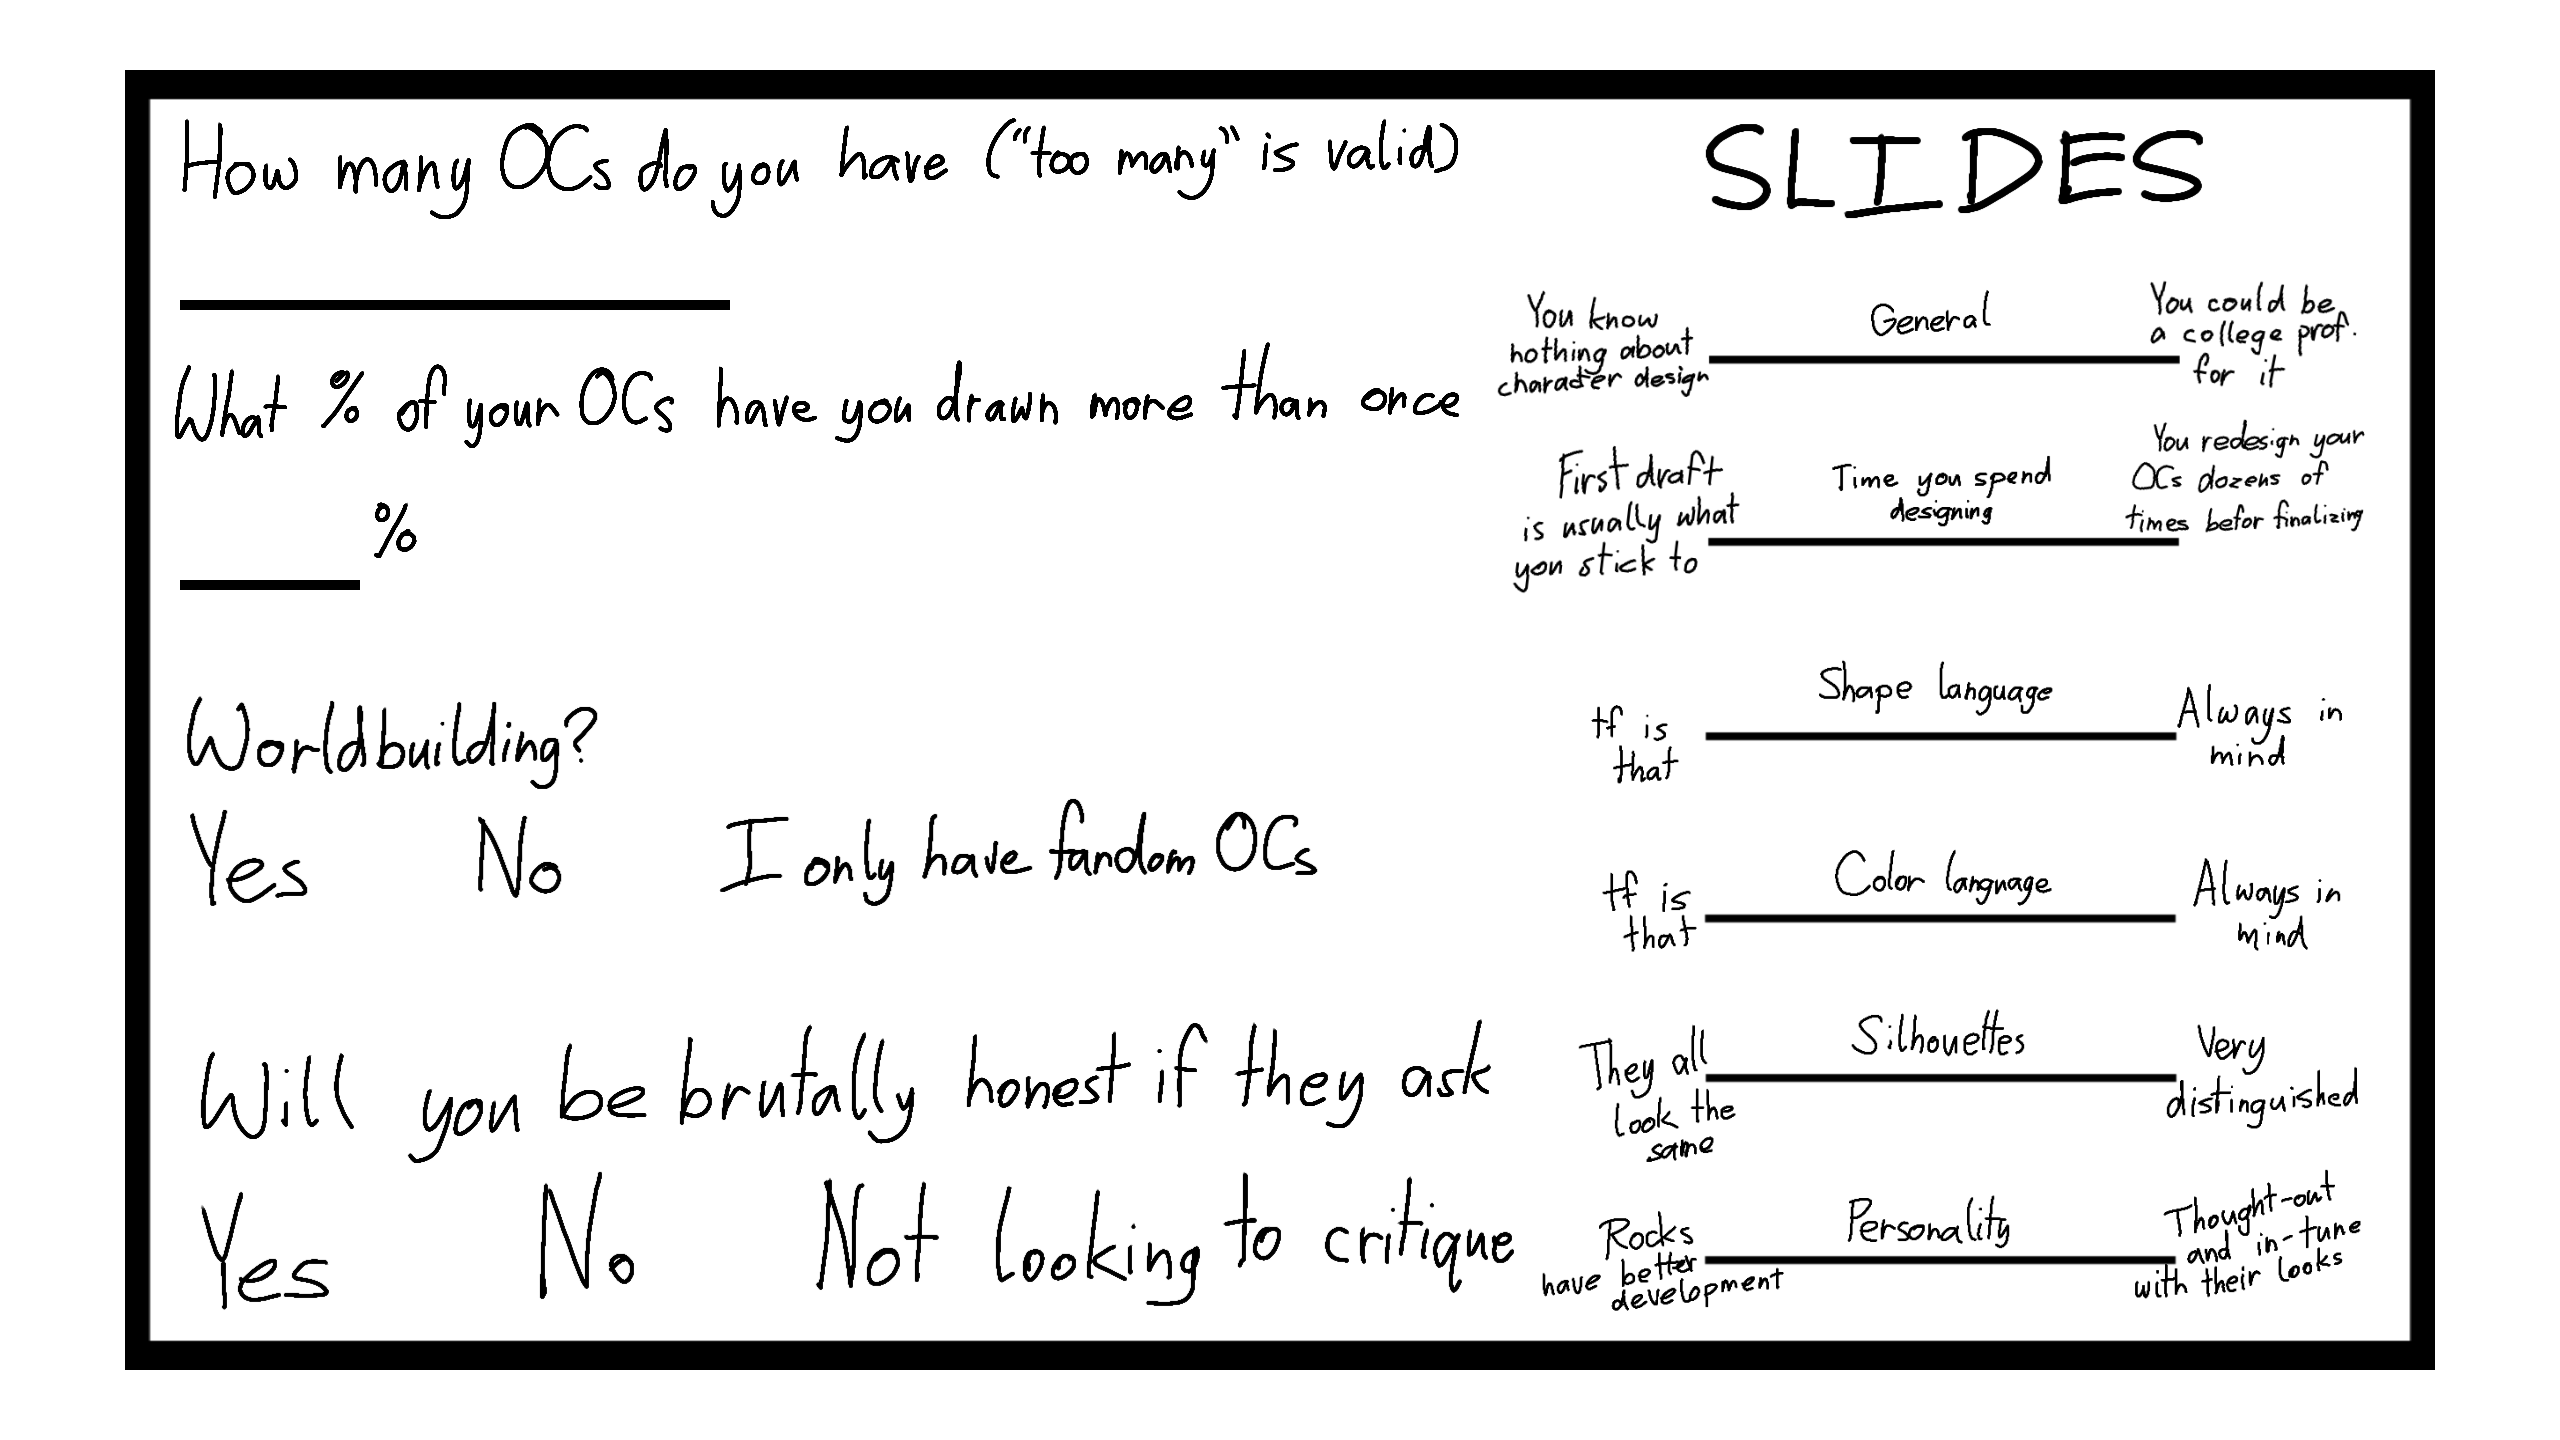 How many OCs do you have ("too many" is valid)
What % of your OCs have you drawn more than once
%
Worldbuilding?
Yes No I only have fandom OCs
Will you be brutally honest if they ask
Yes No Not looking to critique
SLIDES
You know
nothing about
character design
General
You could be
a college prof.
for it
First draft
is usually what
you stick to
Time you spend
designing
You redesign your
OCs dozens of
times befor finalizing
tf is
that
Shape language
Always in
mind
tf is
that
Color language
Always in
mind
They all
look the
same
Silhouettes
Very
distinguished
Rocks
have better
development
Personality
Thought-out
and in-tune
with their looks